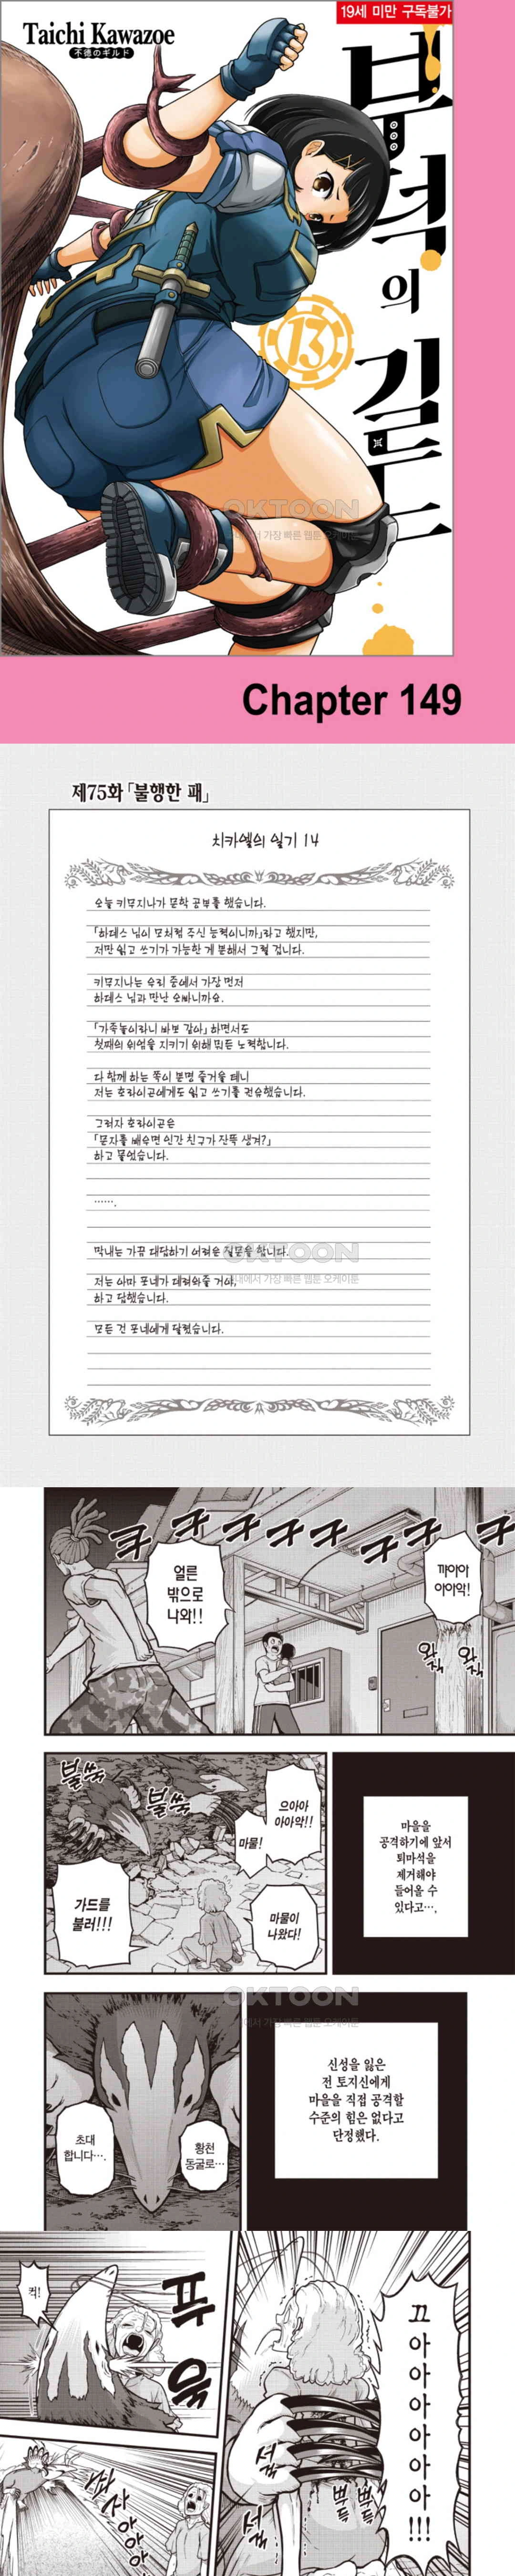 19세 미만 구독불가
Taichi Kawazoe
不徳のギルド
부덕의 길드
13
Chapter 149
제75화 「불행한 패」
치카엘의 일기 14
오늘 키무지나가 문학 공부를 했습니다.
「하데스 님이 모처럼 주신 능력이니까」라고 했지만,
저만 읽고 쓰기가 가능한 게 분해서 그럴 겁니다.
키무지나는 우리 중에서 가장 먼저
하데스 님과 만난 오빠니까요.
「가족놀이라니 바보 같아」 하면서도
첫째의 위엄을 지키기 위해 뭐든 노력합니다.
다 함께 하는 쪽이 분명 즐거울 테니
저는 호라이곤에게도 읽고 쓰기를 권유했습니다.
그러자 호라이곤은
「문자를 배우면 인간 친구가 잔뜩 생겨?」
하고 물었습니다.
…….
막내는 가끔 대답하기 어려운 질문을 합니다.
저는 아마 포네가 데려와줄 거야,
하고 답했습니다.
모든 건 포네에게 달렸습니다.
OKTOON
쿠구구구구구구
얼른
밖으로
나와!!
까아아
아이악!
와직
와직
불쑥
불쑥
으아아
아아악!!
마물!
가드를
불러!!!
마물이
나왔다!
마을을
공격하기에 앞서
퇴마석을
제거해야
들어올 수
있다고…,
OKTOON
초대
합니다….
황천
동굴로…
신성을 잃은
전 토지신에게
마을을 직접 공격할
수준의 힘은 없다고
단정했다.
컥!
푸욱
끄아아아아아아!!!